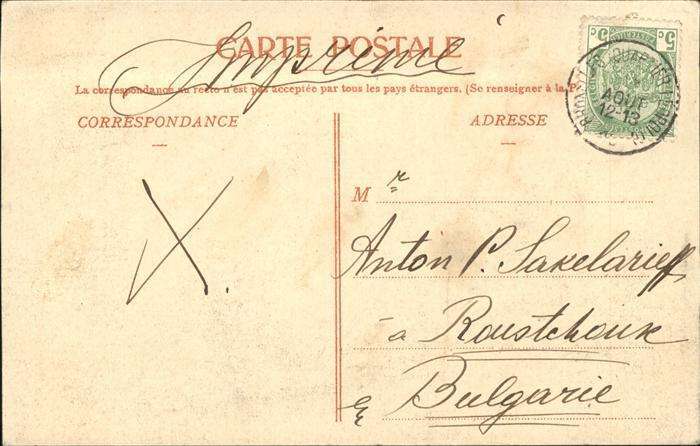 CARTE POSTALE
Imprimé
La correspondance au recto n'est pas acceptée par tous les pays étrangers. (Se renseigner à la P
CORRESPONDANCE
ADRESSE
5 c 5 c
AOUT
12-13
X.
M r
Anton P. Sakelarieff
à Roustchouk
Bulgarie